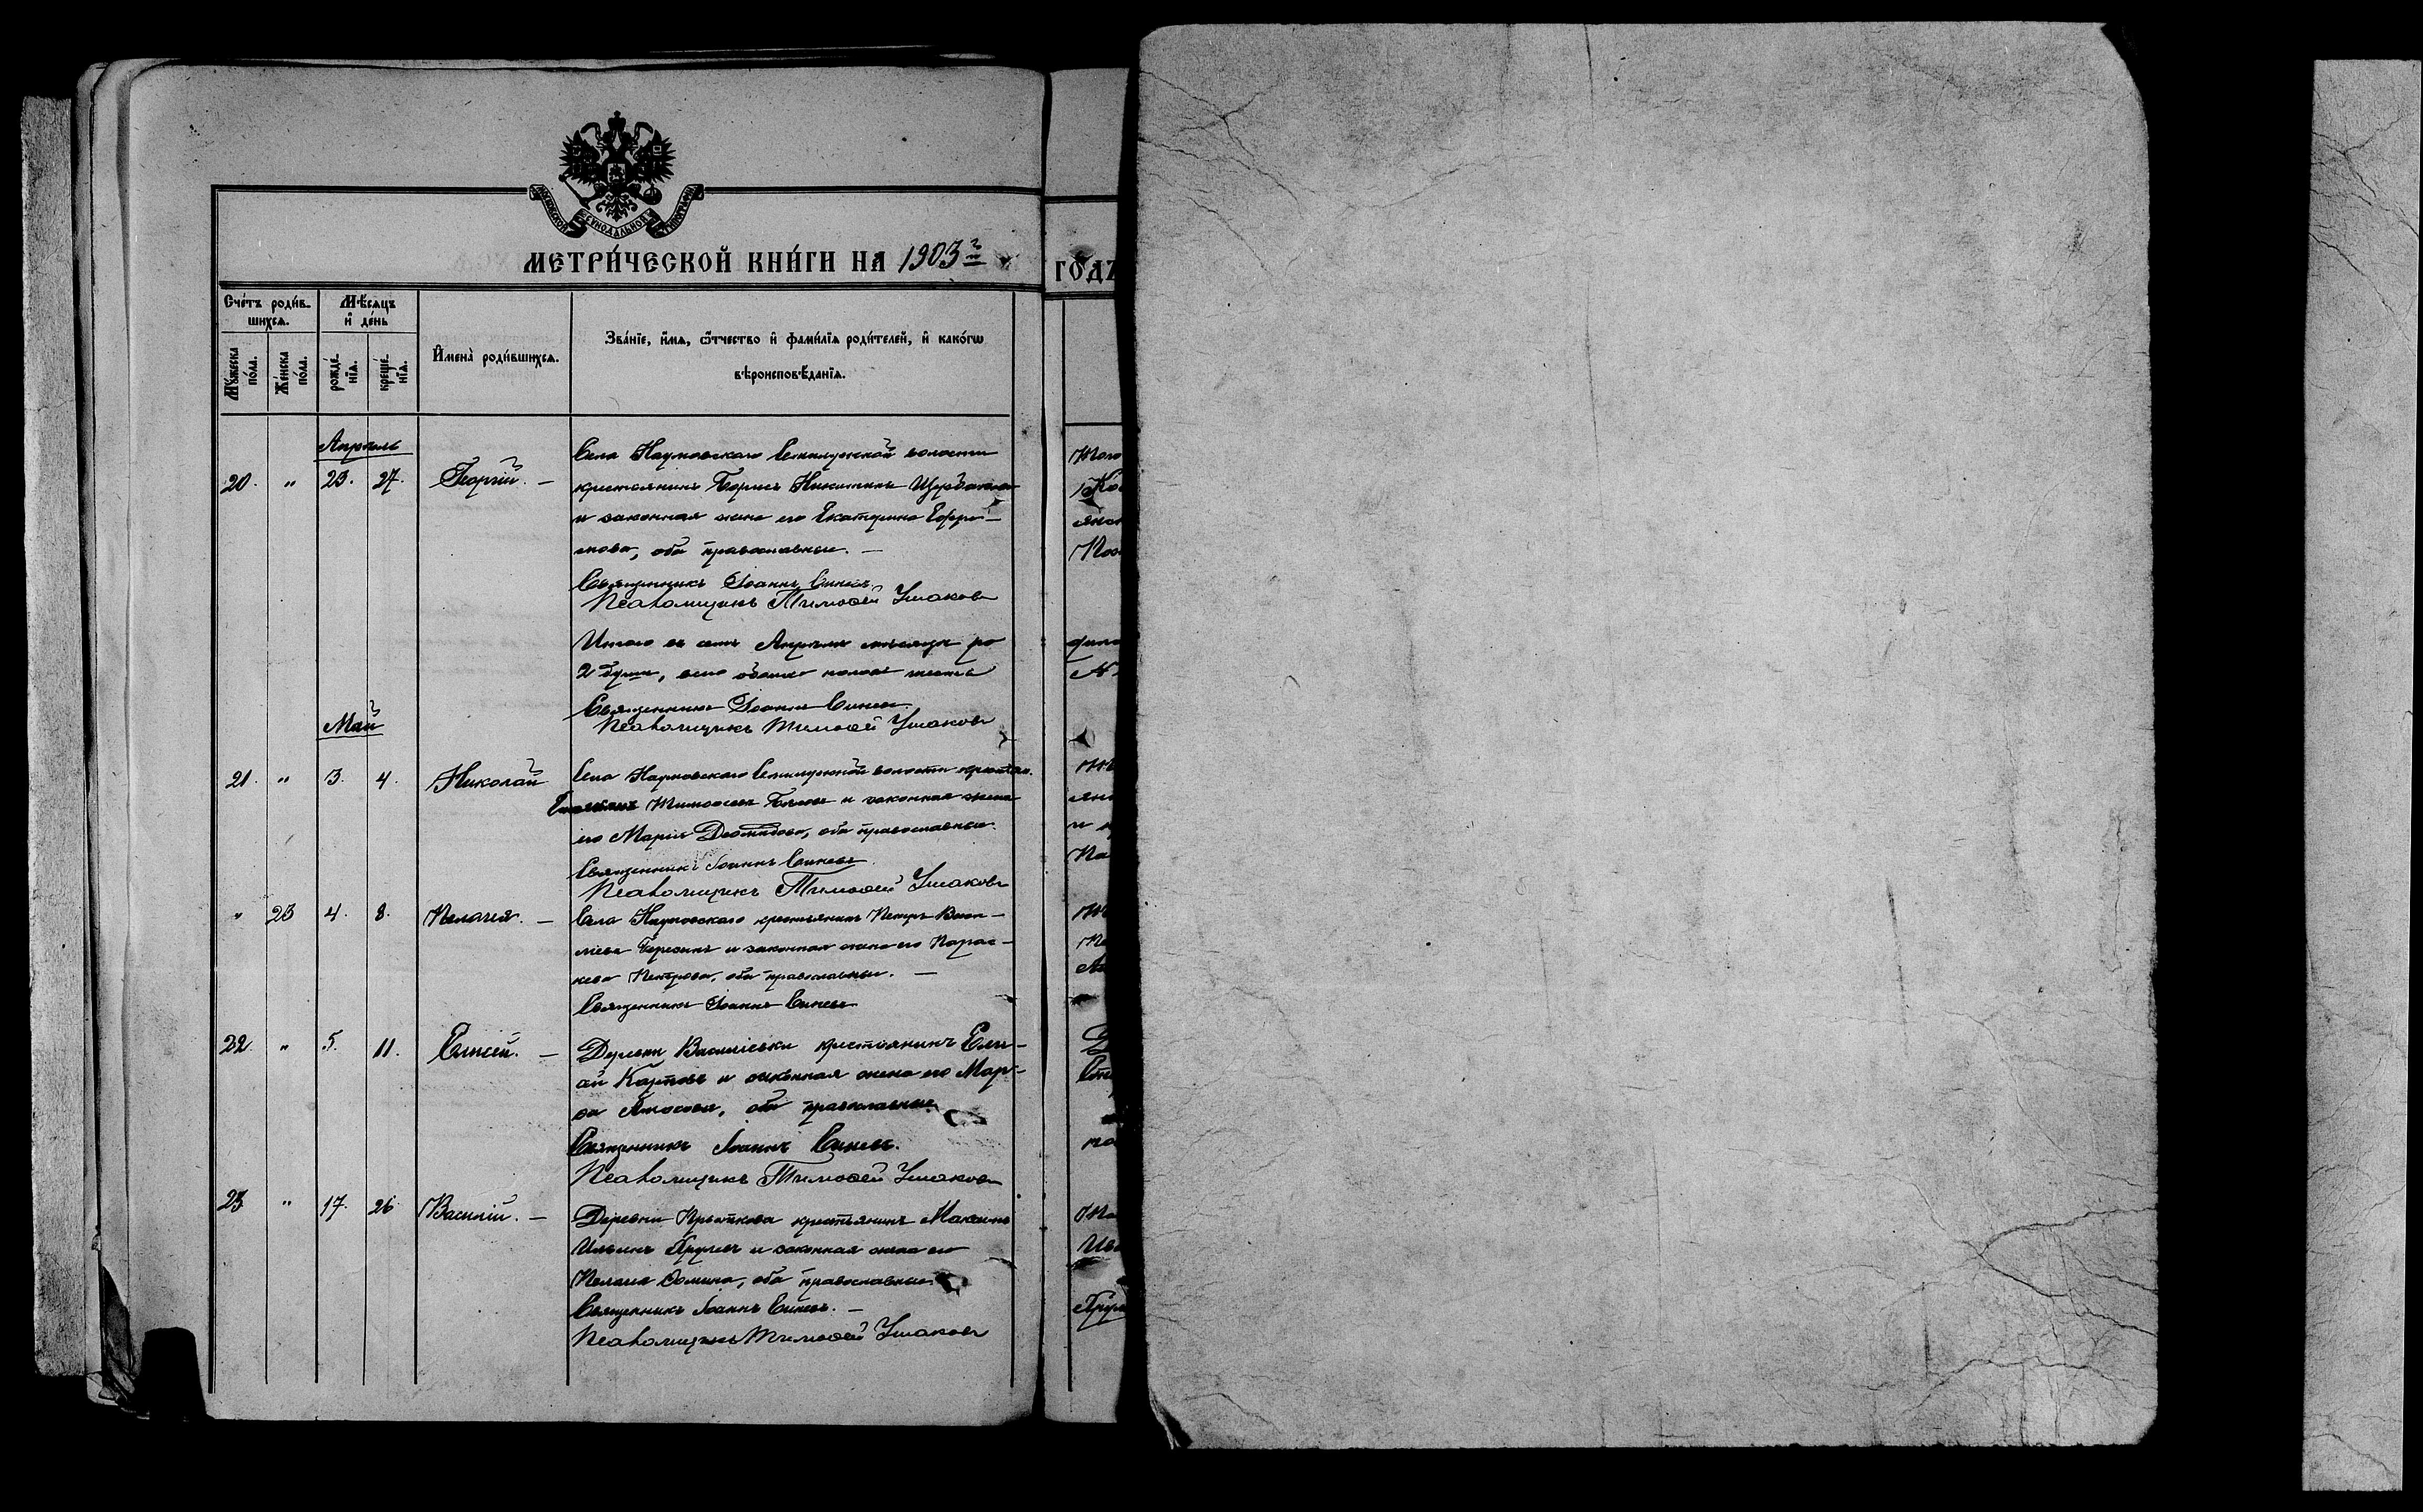 МОСКОВСКОЙ СѴНОДАЛЬНОЙ ТИПОГРАФІИ
МЕТРИ́ЧЕСКОЙ КНИ́ГИ НА 1903 г.
ГОДЪ
Сче́тъ роди́в-
шихсѧ.
Мѣ́сѧцъ
и҆ де́нь
Мꙋ́жеска по́ла.
Же́нска по́ла.
рожде́-
нїѧ.
креще́-
нїѧ.
И҆мена̀ роди́вшихсѧ.
Зва́нїе, и҆́мѧ, ѻ҆́тчество и҆ фами́лїѧ роди́телей, и҆ како́гѡ
вѣроисповѣ́данїѧ.
Апрѣль
20. " 23. 27. Георгій. — Села Наумовскаго Семилужной волости
крестьянинъ Борисъ Никитинъ Щербаковъ
и законная жена его Екатерина Ефре-
мова, оба православные. —
Священникъ Іоаннъ Синевъ.
Псаломщикъ Тимоѳей Ушаковъ
Итого въ семъ Апрѣлѣ мѣсяцѣ ро
2 души, всего обоего полов
Священникъ Іоаннъ Синевъ.
Псаломщикъ Тимоѳей Ушаковъ
Май
21. " 3. 4. Николай Села Наумовскаго Семилужной волости крестьян.
Тимоѳеевъ и законная жена
его Марія Діомидова, оба православные.
Священникъ Іоаннъ Синевъ.
Псаломщикъ Тимоѳей Ушаковъ
" 23 4. 8. Пелагея. — Села Наумовскаго крестьянинъ Петръ Васи-
льевъ Березинъ и законная жена его Парас-
кева Петрова, оба православные. —
Священникъ Іоаннъ Синевъ
22. " 5. 11. Елисей. — крестьянинъ
Карповъ и законная жена его Мар-
оба православные
Священникъ Іоаннъ Синевъ.
Псаломщикъ Тимоѳей Ушаковъ
23 " 17. 26 Василій. — Деревни крестьянинъ Максимъ
Ильинъ и законная жена его
Пелагея Ѳомина, оба православные
Священникъ Іоаннъ Синевъ. —
Псаломщикъ Тимоѳей Ушаковъ